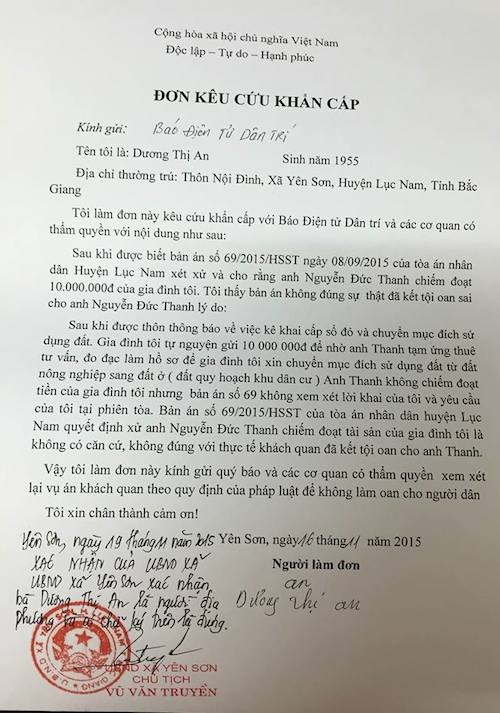 Cộng hòa xã hội chủ nghĩa Việt Nam
Độc lập – Tự do – Hạnh phúc
ĐƠN KÊU CỨU KHẨN CẤP
Kính gửi: Báo Điện Tử Dân Trí
Tên tôi là: Dương Thị An Sinh năm 1955
Địa chỉ thường trú: Thôn Nội Đình, Xã Yên Sơn, Huyện Lục Nam, Tỉnh Bắc
Giang
Tôi làm đơn này kêu cứu khẩn cấp với Báo Điện tử Dân trí và các cơ quan có
thẩm quyền với nội dung như sau:
Sau khi được biết bản án số 69/2015/HSST ngày 08/09/2015 của tòa án nhân
dân Huyện Lục Nam xét xử và cho rằng anh Nguyễn Đức Thanh chiếm đoạt
10.000.000đ của gia đình tôi. Tôi thấy bản án không đúng sự thật đã kết tội oan sai
cho anh Nguyễn Đức Thanh lý do:
Sau khi được thôn thông báo về việc kê khai cấp số đỏ và chuyển mục đích sử
dụng đất. Gia đình tôi tự nguyện gửi 10 000 000đ để nhờ anh Thanh tạm ứng thuê
tư vấn, đo đạc làm hồ sơ để gia đình tôi xin chuyển mục đích sử dụng đất từ đất
nông nghiệp sang đất ở ( đất quy hoạch khu dân cư ) Anh Thanh không chiếm đoạt
tiền của gia đình tôi nhưng bản án số 69 không xem xét lời khai của tôi và yêu cầu
của tôi tại phiên tòa. Bản án số 69/2015/HSST của tòa án nhân dân huyện Lục
Nam quyết định xử anh Nguyễn Đức Thanh chiếm đoạt tài sản của gia đình tôi là
không có căn cứ, không đúng với thực tế khách quan đã kết tội oan cho anh Thanh.
Vậy tôi làm đơn này kính gửi quý báo và các cơ quan có thẩm quyền xem xét
lại vụ án khách quan theo quy định của pháp luật để không làm oan cho người dân
Tôi xin chân thành cảm ơn!
Yên Sơn, ngày 19 tháng 11 năm 2015 Yên Sơn, ngày 16 tháng 11 năm 2015
XÁC NHẬN CỦA UBND XÃ Người làm đơn
UBND xã Yên Sơn xác nhận an
bà Dương Thị An là người địa Dương thị an
phương và chữ ký trên là đúng.
UBND XÃ YÊN SƠN
CHỦ TỊCH
VŨ VĂN TRUYỀN